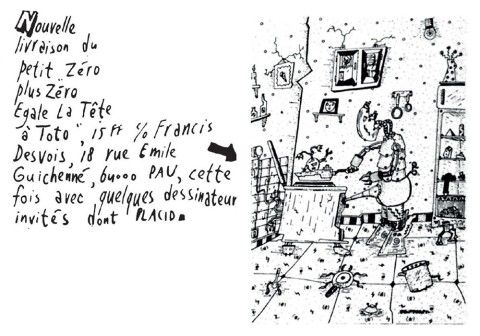 Nouvelle
livraison du
petit Zéro
plus Zéro
Egale La Tête
à Toto", 15 FF c/o Francis
Desvois, 18 rue Emile
Guichenné, 64000 PAU, cette
fois avec quelques dessinateur
invités dont PLACID.